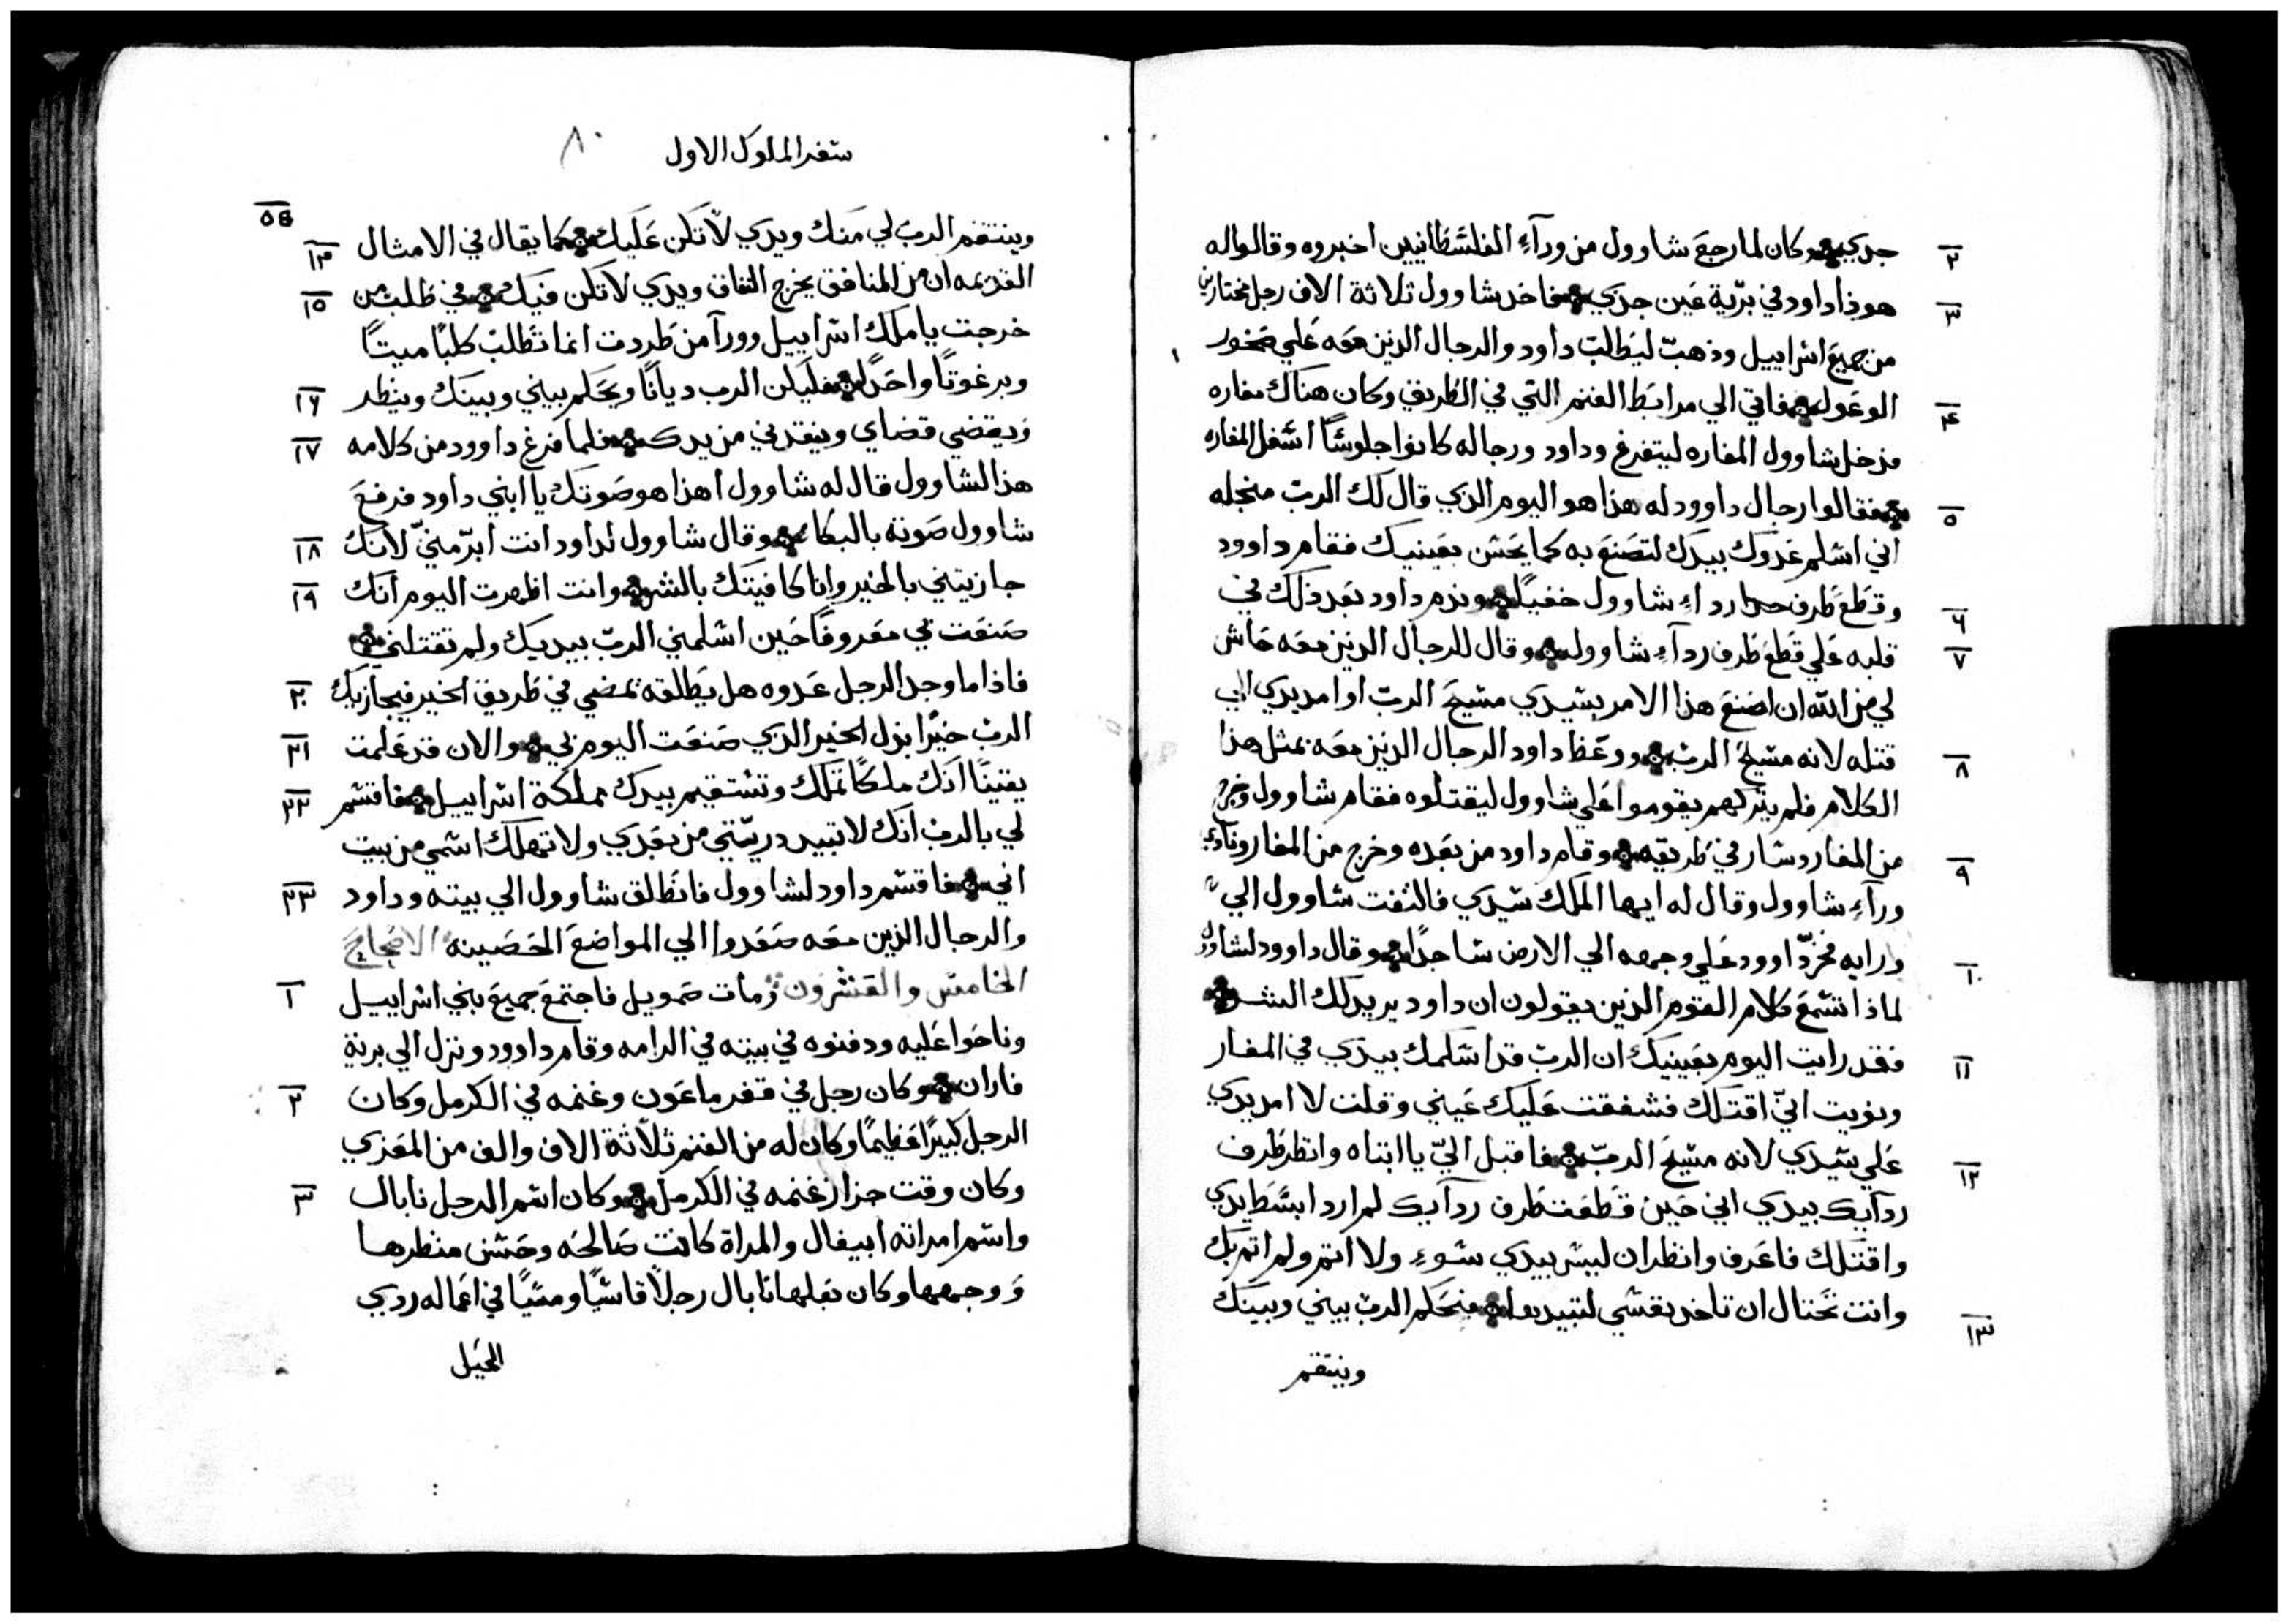 ٢ جدي وكان لما رجع شاوول من ورآء الفلسطانيين اخبروه وقالوا له
٣ هوذا داود في برّية عين جدي فاخد شاوول ثلاثة الاف رجل مختارين
من جميع اسراييل وذهب ليطلب داود والرجال الذين معه علي صخور
٤ الوعول فاتي الي مرابط الغنم التي في الطريق وكان هناك مغاره
فدخل شاوول المغاره ليتفرغ وداود ورجاله كانوا جلوسًا اسفل المغاره
٥ فقالوا رجال داوود له هذا هو اليوم الذي قال لك الرب من اجله
اني اسلم عدوك بيدك لتصنع به كما يحسن بعينيك فقام داوود
٦ وقطع طرف ردآء شاوول خفيًا وندم داود بعد ذلك في
٧ قلبه علي قطع طرف ردآء شاوول وقال للرجال الذين معه حاش
لي من الله ان اصنع هذا الامر بسيدي مسيح الرب او امد يدي الي
٨ قتله لانه مسيح الرب ووعظ داود الرجال الذين معه بمثل هذا
الكلام فلم يتركهم يقوموا علي شاوول ليقتلوه فقام شاوول وخرج
٩ من المغار وسار في طريقه وقام داود من بعده وخرج من المغار ونادي
ورآء شاوول وقال له ايها الملك سيدي فالتفت شاوول الي
١٠ ورايه فخرّ داوود علي وجهه الي الارض ساجدًا وقال داوود لشاوول
لماذا تسمع كلام القوم الذين يقولون ان داود يريد لك الشر
١١ فقد رايت اليوم بعينيك ان الرب قد اسلمك بيدي في المغار
ونويت انّي اقتلك فشفقت عليك عيني وقلت لا امد يدي
١٢ علي سيدي لانه مسيح الربّ فاقبل اليّ يا ابتاه وانظر طرف
ردآيك بيدي اني حين قطعت طرف ردآيك لم ارد ابسط يدي
واقتلك فاعرف وانظر ان ليس بيدي سوء ولا اتم ولم اتم بك
١٣ وانت تحتال ان تاخد نفسي لتبيدها فيحكم الرب بيني وبينك
وينتقم
سفر الملوك الاول ٨٠
٥٤
وينتقم الرب لي منك ويدي لا تكن عليك كما يقال في الامثال ١٣
القديمه ان من المنافق يخرج النفاق ويدي لا تكن فيك في طلب من ١٥
خرجت يا ملك اسراييل وورآ من طردت انما تطلب كلبًا ميتًا
وبرغوتًا واحدًا فليكن الرب ديانًا ويحكم بيني وبينك وينظر ١٦
ويقضي قضاي وينقدني من يدك فلما فرغ داوود من كلامه ١٧
هذا لشاوول قال له شاوول اهذا هو صوتك يا ابني داود فرفع
شاوول صوته بالبكا وقال شاوول لداود انت ابرّ منيّ لانك ١٨
جازيتني بالخير وانا كافيتك بالشر وانت اظهرت اليوم انك ١٩
صنعت بي معروفًا حين اسلمني الربّ بيديك ولم تقتلني
فاذا ما وجد الرجل عدوه هل يطلقه يمضي في طريق الخير فيجازيك ٢٠
الرب خيرًا بدل الخير الذي صنعت اليوم بي والان قد علمت ٢١
يقينًا انك ملكًا تملك وتستقيم بيدك مملكة اسراييل فاقسم ٢٢
لي بالرب انك لا تبيد دريتي من بعدي ولا تهلك اسمي من بيت
ابي فاقسم داود لشاوول فانطلق شاوول الي بيته وداود ٢٣
والرجال الذين معه صعدوا الي المواضع الحصينه الاصحاح
الخامس والعشرون ومات صمويل فاجتمع جميع بني اسراييل ١
وناحوا عليه ودفنوه في بيته في الرامه وقام داوود ونزل الي برية
فاران وكان رجل في قفر ماعون وغنمه في الكرمل وكان ٢
الرجل كبيرًا عظيمًا وكان له من الغنم ثلاثة الاف والف من المعزي
وكان وقت جزاز غنمه في الكرمل وكان اسم الرجل نابال ٣
واسم امراته ابيغال والمراة كانت صالحه وحسن منظرها
ووجهها وكان بعلها نابال رجلًا قاسيًا ومسيًا في اعماله ردي
الحيل